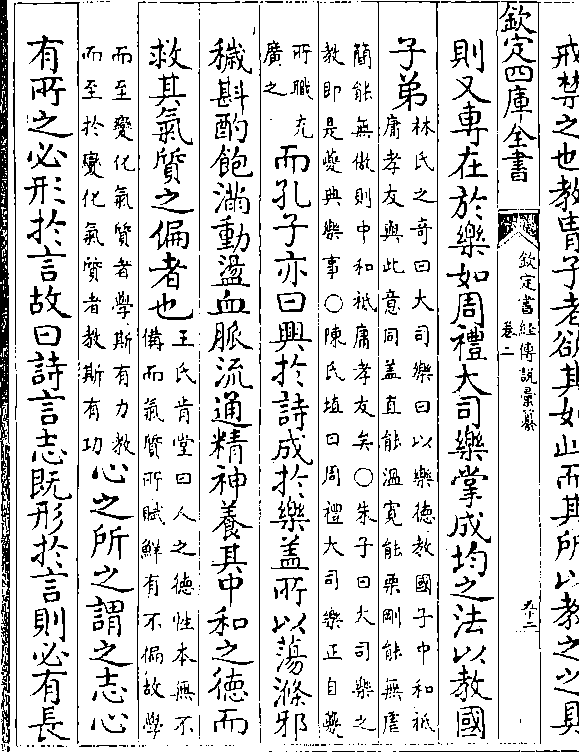 戒禁之也教胄子者欲其如此而其所以教之之具
欽定四庫全書
欽定書經傳說彙纂
卷二
則又專在於樂如周禮大司樂掌成均之法以教國
子弟
林氏之奇曰大司樂曰以樂德教國子中和祗
庸孝友與此意同盖直能溫寬能栗剛能無虐
簡能無傲則中和祗庸孝友矣○朱子曰大司樂之
教即是䕫典樂事○陳氏埴曰周禮大司樂正自䕫
所職充
廣之
而孔子亦曰興於詩成於樂盖所以蕩滌邪
穢斟酌飽滿動盪血脈流通精神養其中和之德而
救其氣質之偏者也
王氏肯堂曰人之德性本無不
備而氣質所賦鮮有不偏故學
而至變化氣質者學斯有力教
而至於變化氣質者教斯有功
心之所之謂之志心
有所之必形於言故曰詩言志既形於言則必有長